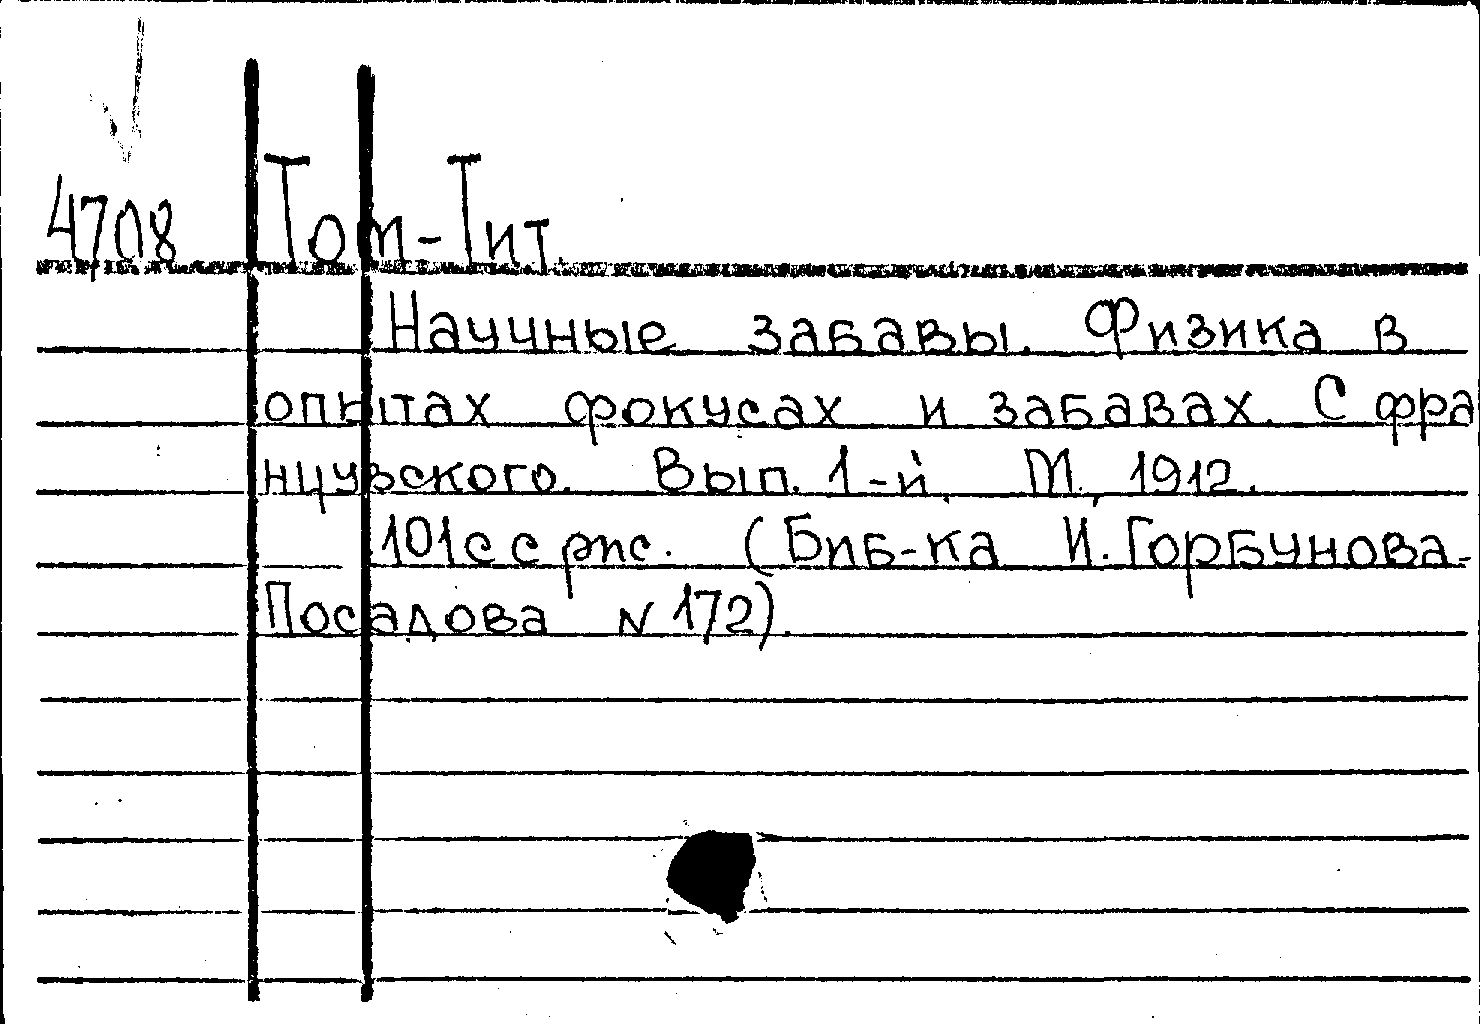 4708 Том-Тит.
Научные забавы. Физика в
опытах фокусах и забавах. С фра
нцузского. Вып. 1-й. М., 1912.
101с с рис. (Биб-ка И. Горбунова-
Посадова N 172).